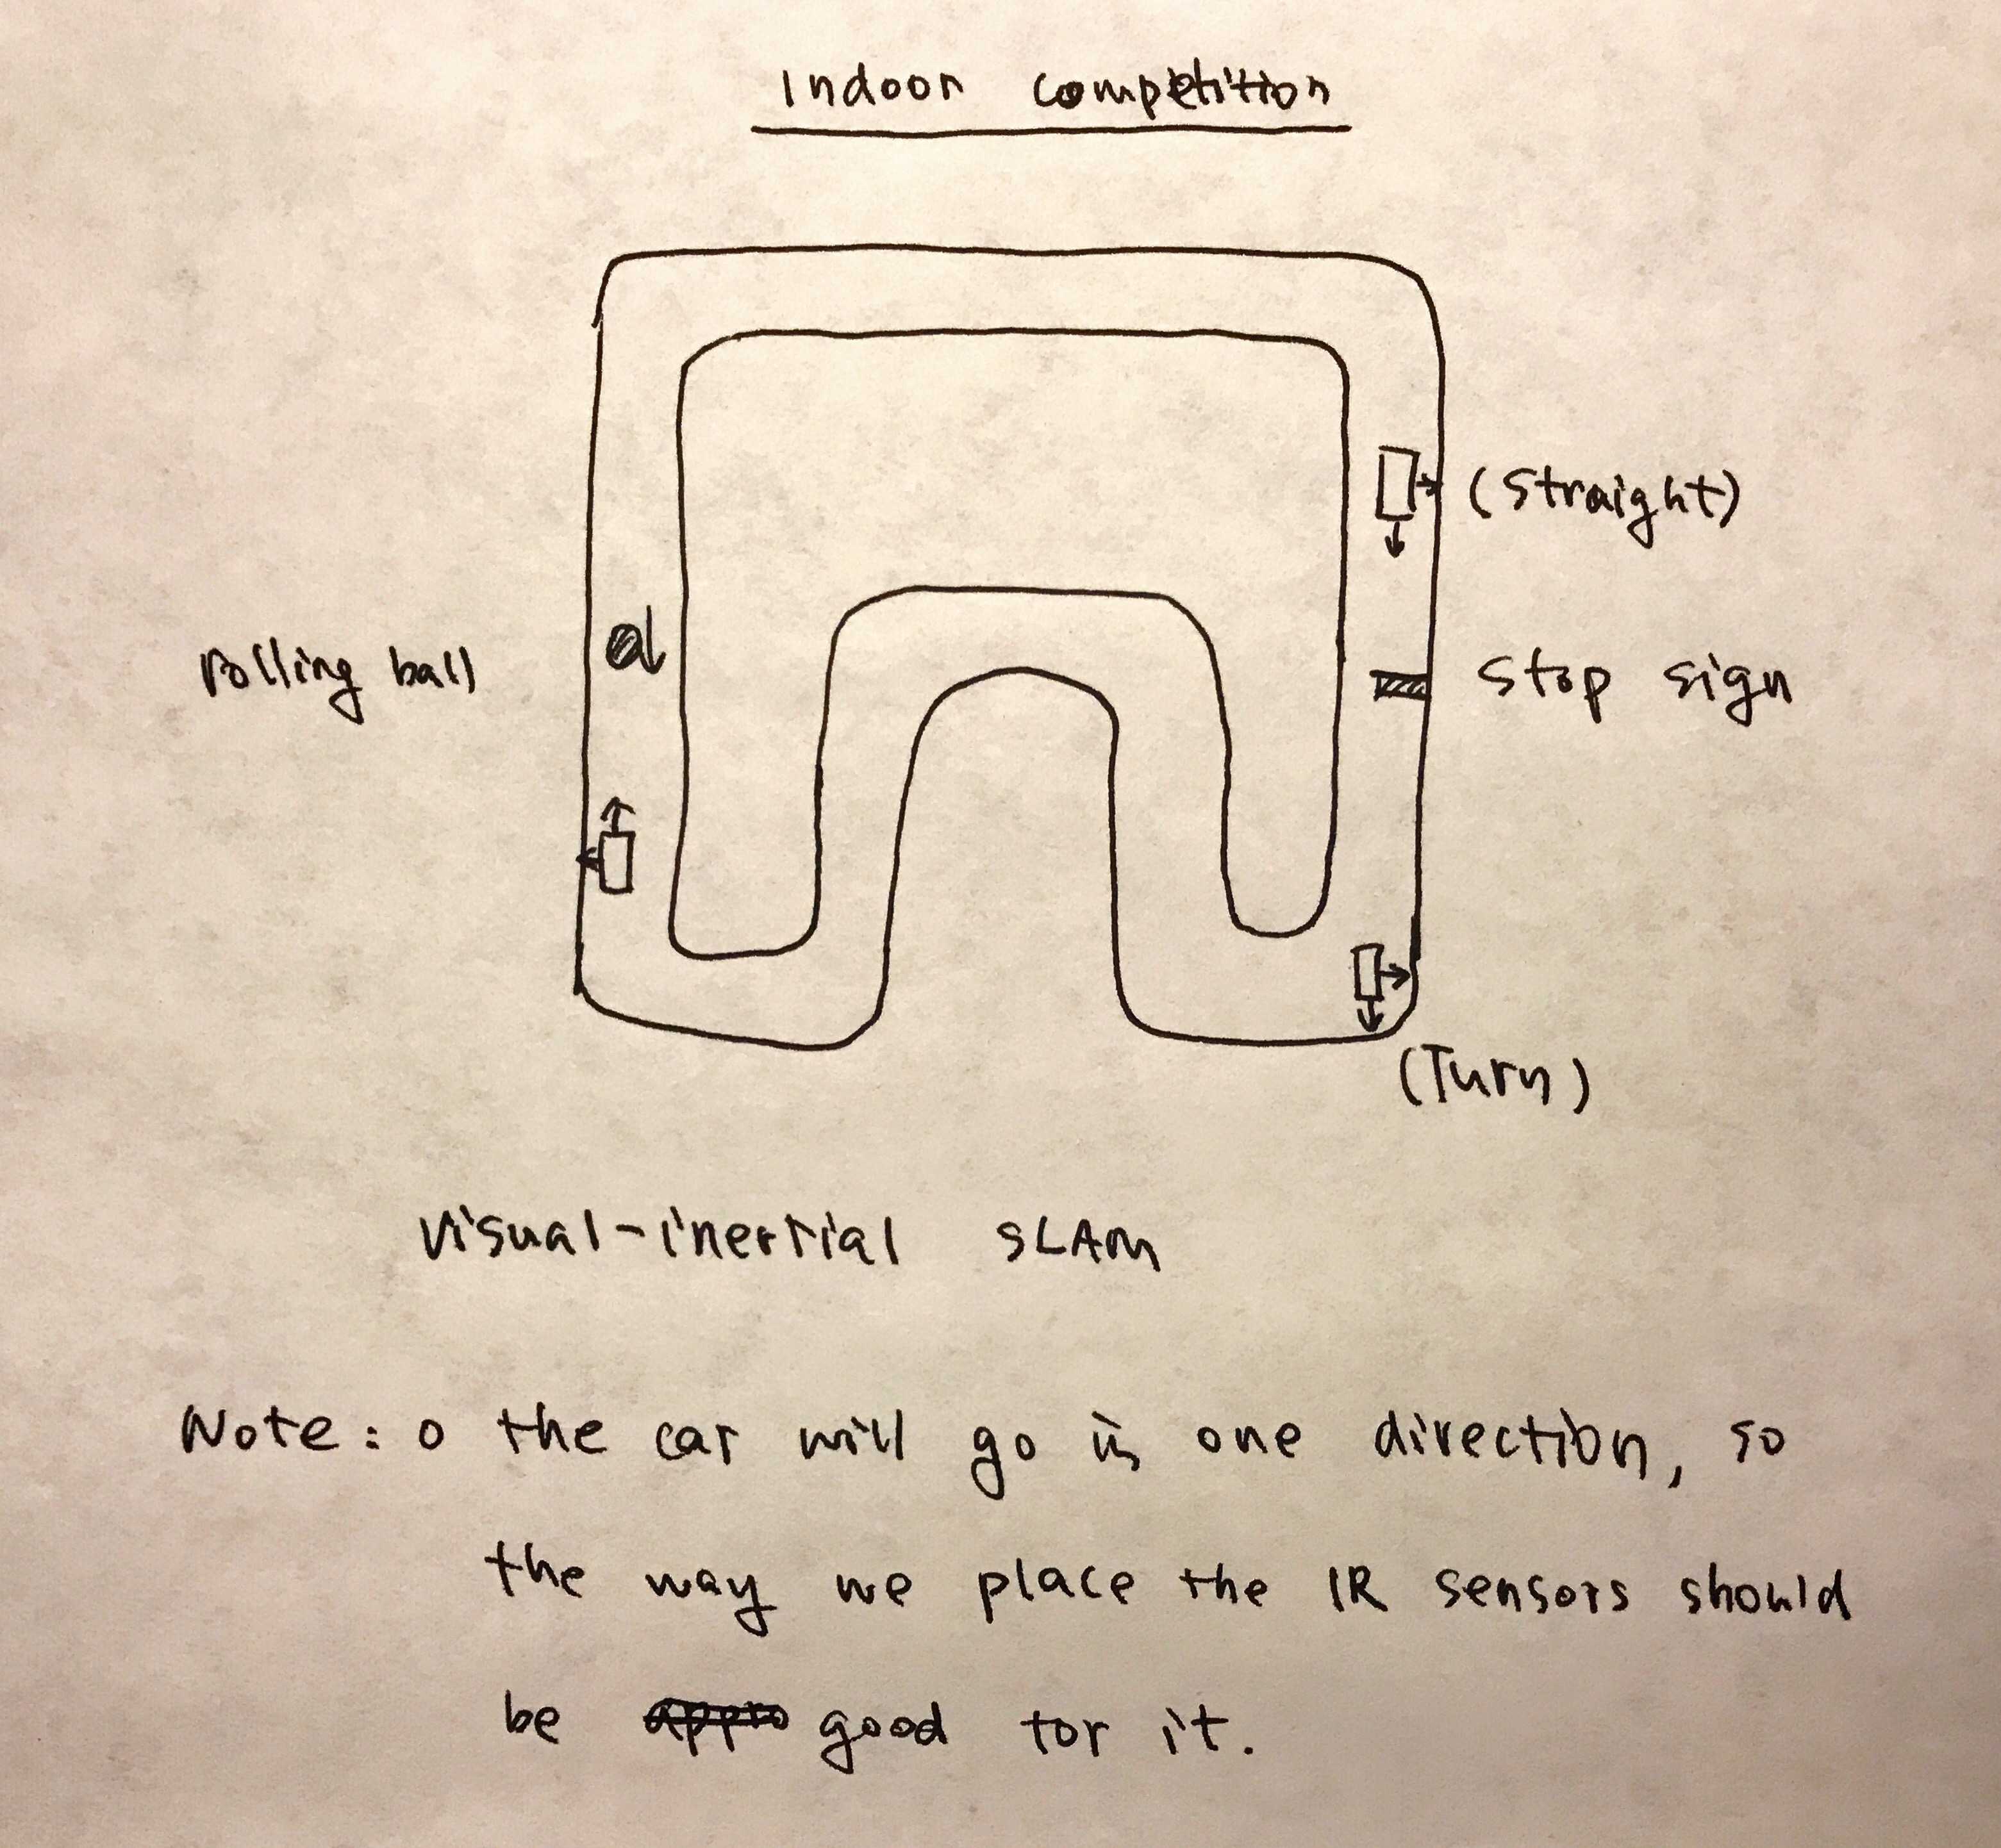 Indoor competition
(Straight)
rolling ball
Stop sign
(Turn)
Visual-inertial SLAM
Note: o the car will go in one direction, so
the way we place the IR sensors should
be appro good for it.